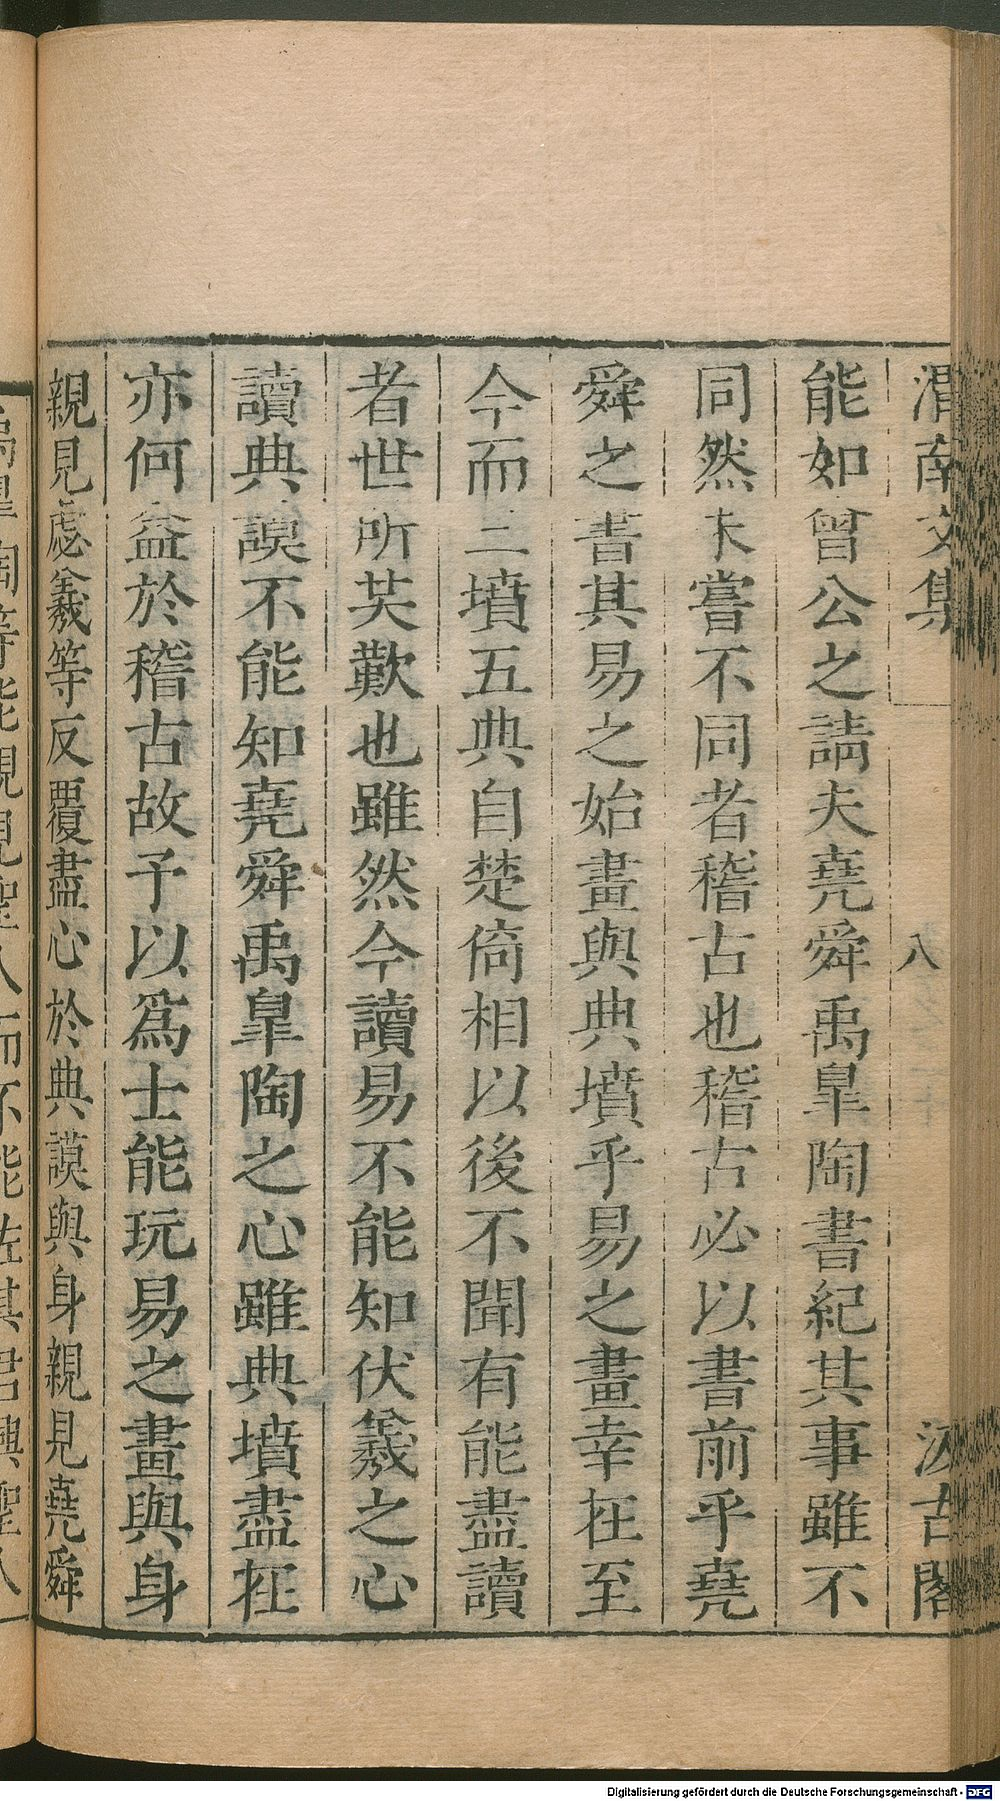 渭南文集
八
汲古閣
能如曾公之請夫堯舜禹臯陶書紀其事雖不
同然未嘗不同者稽古也稽古必以書前乎堯
舜之書其易之始畫與典墳乎易之畫幸在至
今而三墳五典自楚倚相以後不聞有能盡讀
者世所共歎也雖然今讀易不能知伏羲之心
讀典謨不能知堯舜禹臯陶之心雖典墳盡在
亦何益於稽古故予以爲士能玩易之畫與身
親見虙羲等反覆盡心於典謨與身親見堯舜
陶等能親見聖人而不能佐其君興聖人
Digitalisierung gefördert durch die Deutsche Forschungsgemeinschaft - DFG